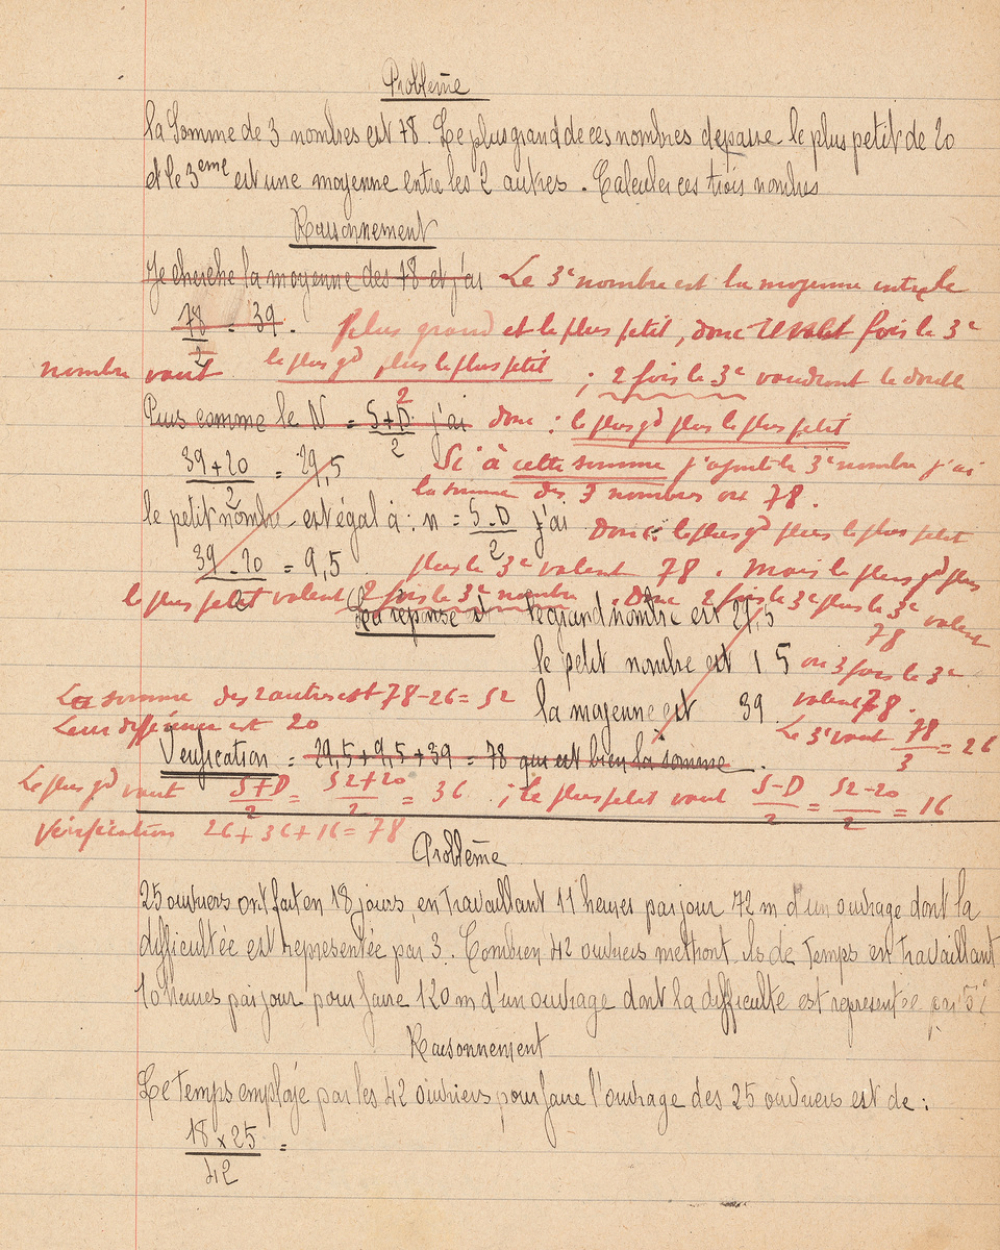 Problème
la Somme de 3 nombres est 78. Le plus grand de ces nombres depasse le plus petit de 20
et le 3eme est une moyenne entre les 2 autres. Calculer ces trois nombres
Raisonnement
Je cherche la moyenne des 78 et j'ai Le 3e nombre est la moyenne entre le
78/2 = 39. plus grand et le plus petit, donc fois le 3e
nombre vaut le plus gd plus le plus petit / 2 ; 2 fois le 3e vaudront le double
Puis comme le N = S+D/2 j'ai donc : le plus gd plus le plus petit
39+20/2 = 29,5 Si à cette somme j'ajoute le 3e nombre j'ai
la somme des 3 nombres ou 78.
le petit nombre est égal à : n = S-D/2 j'ai Donc : le plus gd plus le plus petit
39-20/2 = 9,5 plus le 3e valent 78. Mais le plus gd plus
le plus petit valent 2 fois le 3e nombre. Donc 2 fois le 3e plus le 3e valent
78
La réponse est le grand nombre est 29,5
le petit nombre est 1 5 ou 3 fois le 3e
valent 78.
La somme des 2 autres est 78-26 = 52
la moyenne est 39
Leur différence est 20
Le 3e vaut 78/3 = 26
Verification = 29,5+9,5+39 = 78 qui est bien la somme.
Le plus gd vaut S+D/2 = 52+20/2 = 36 ; le plus petit vaut S-D/2 = 52-20/2 = 16
Vérification 26+36+16 = 78
Problème
25 ouvriers ont fait en 18 jours en travaillant 11 heures par jour 72 m d'un ouvrage dont la
difficultée est representée par 3. Combien 42 ouvriers methont ils de temps en travaillant
10 heures par jour pour faire 120 m d'un ouvrage dont la difficulte est representee par 5
Raisonnement
Le temps employé par les 42 ouvriers pour faire l'ouvrage des 25 ouvriers est de :
18 x 25/42 =